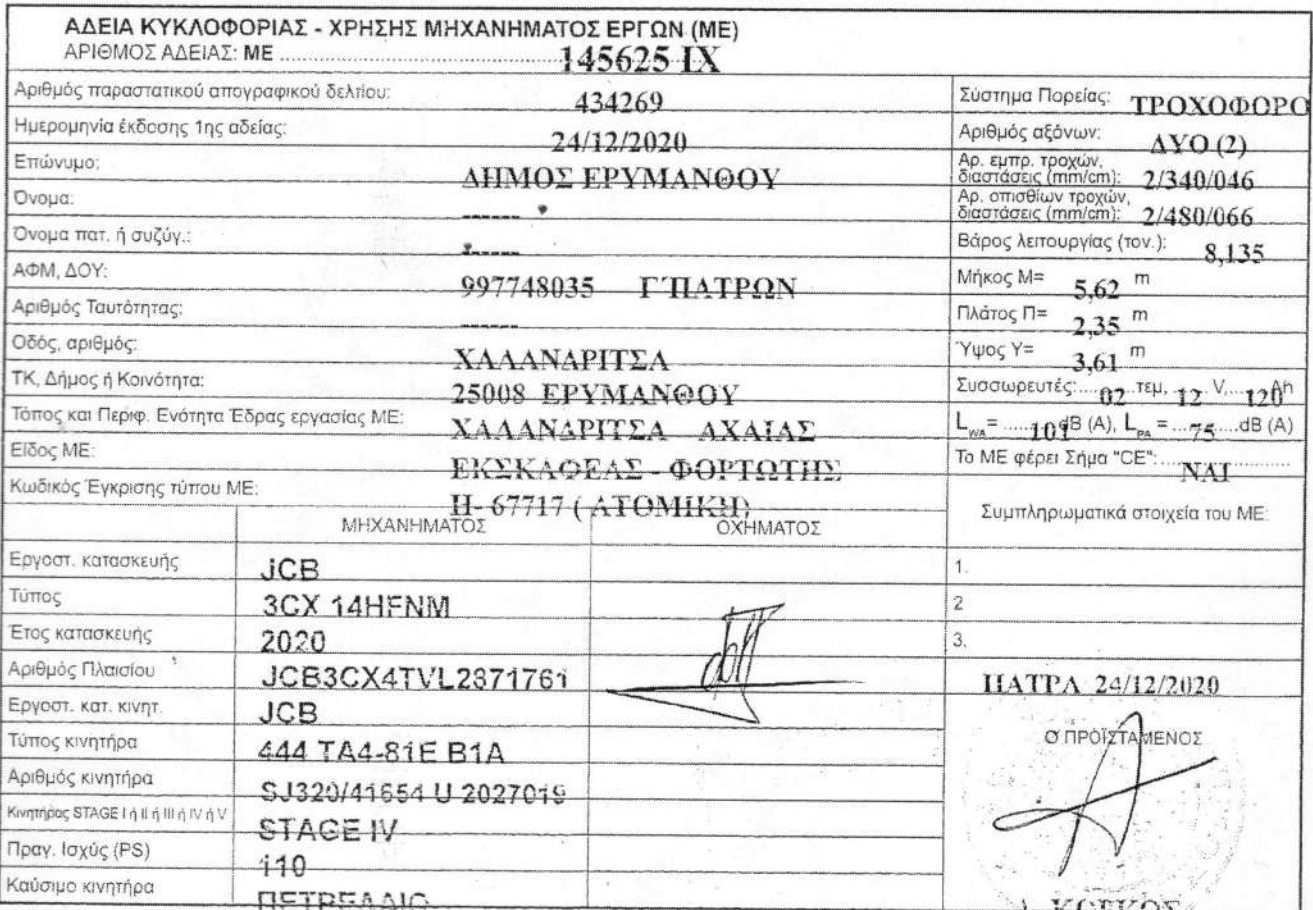 ΑΔΕΙΑ ΚΥΚΛΟΦΟΡΙΑΣ - ΧΡΗΣΗΣ ΜΗΧΑΝΗΜΑΤΟΣ ΕΡΓΩΝ (ΜΕ)
ΑΡΙΘΜΟΣ ΑΔΕΙΑΣ: ΜΕ 145625 ΙΧ
Αριθμός παραστατικού απογραφικού δελτίου: 434269
Ημερομηνία έκδοσης 1ης αδείας: 24/12/2020
Επώνυμο: ΔΗΜΟΣ ΕΡΥΜΑΝΘΟΥ
Όνομα: ------
Όνομα πατ. ή συζύγ.: ------
ΑΦΜ, ΔΟΥ: 997748035 Γ΄ΠΑΤΡΩΝ
Αριθμός Ταυτότητας: ------
Οδός, αριθμός: ΧΑΛΑΝΔΡΙΤΣΑ
ΤΚ, Δήμος ή Κοινότητα: 25008 ΕΡΥΜΑΝΘΟΥ
Τόπος και Περιφ. Ενότητα Έδρας εργασίας ΜΕ: ΧΑΛΑΝΔΡΙΤΣΑ ΑΧΑΪΑΣ
Είδος ΜΕ: ΕΚΣΚΑΦΕΑΣ - ΦΟΡΤΩΤΗΣ
Κωδικός Έγκρισης τύπου ΜΕ: Η- 67717 ( ΑΤΟΜΙΚΗ)
Σύστημα Πορείας: ΤΡΟΧΟΦΟΡΟ
Αριθμός αξόνων: ΔΥΟ (2)
Αρ. εμπρ. τροχών,
διαστάσεις (mm/cm): 2/340/046
Αρ. οπισθίων τροχών,
διαστάσεις (mm/cm): 2/480/066
Βάρος λειτουργίας (τον.): 8,135
Μήκος Μ= 5,62 m
Πλάτος Π= 2,35 m
Ύψος Υ= 3,61 m
Συσσωρευτές: 02 τεμ, 12 V, 120 Ah
LWA = 101 dB (A), LPA = 75 dB (A)
Το ΜΕ φέρει Σήμα "CE": ΝΑΙ
Συμπληρωματικά στοιχεία του ΜΕ:
1.
2
3.
ΜΗΧΑΝΗΜΑΤΟΣ ΟΧΗΜΑΤΟΣ
Εργοστ. κατασκευής JCB
Τύπος 3CX 14HFNM
Έτος κατασκευής 2020
Αριθμός Πλαισίου JCB3CX4TVL2871761
Εργοστ. κατ. κινητ. JCB
Τύπος κινητήρα 444 TA4-81E B1A
Αριθμός κινητήρα SJ320/41654 U 2027019
Κινητήρας STAGE I ή II ή III ή IV ή V STAGE IV
Πραγ. Ισχύς (PS) 110
Καύσιμο κινητήρα ΠΕΤΡΕΛΑΙΟ
ΠΑΤΡΑ 24/12/2020
Ο ΠΡΟΪΣΤΑΜΕΝΟΣ